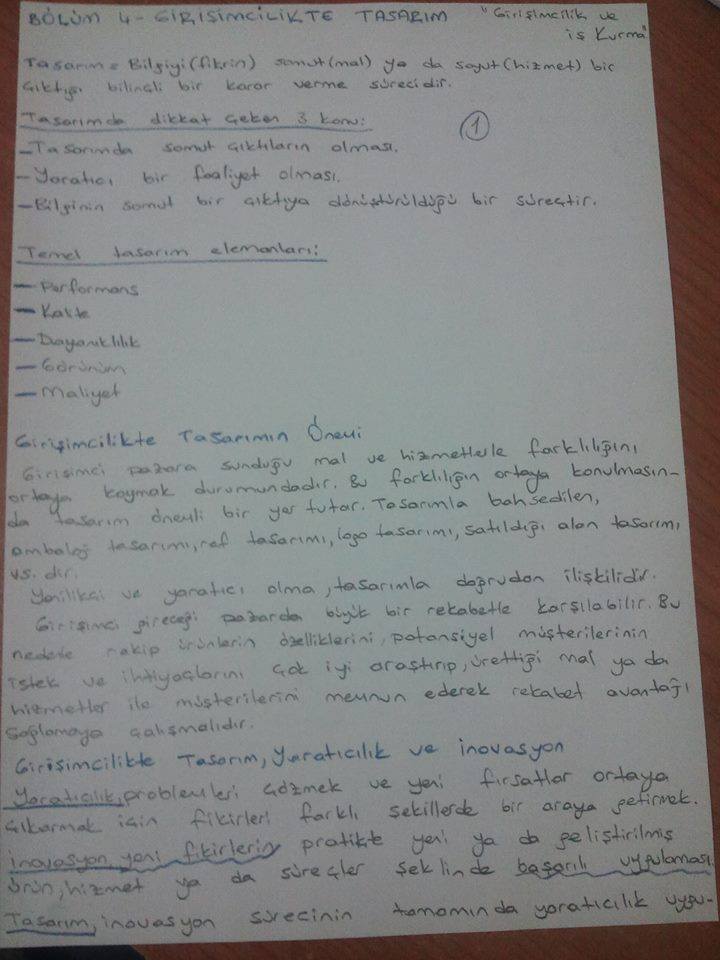 BÖLÜM 4 - GİRİŞİMCİLİKTE TASARIM "Girişimcilik ve
iş Kurma"
Tasarım = Bilgiyi (fikrin) somut (mal) ya da soyut (hizmet) bir
çıktısı bilinçli bir karar verme sürecidir.
Tasarımda dikkat çeken 3 konu:
1
- Tasarımda somut çıktıların olması.
- Yaratıcı bir faaliyet olması.
- Bilginin somut bir çıktıya dönüştürüldüğü bir süreçtir.
Temel tasarım elemanları:
- Performans
- Kalite
- Dayanıklılık
- Görünüm
- Maliyet
Girişimcilikte Tasarımın Önemi
Girişimci pazara sunduğu mal ve hizmetlerle farklılığını
ortaya koymak durumundadır. Bu farklılığın ortaya konulmasın-
da tasarım önemli bir yer tutar. Tasarımla bahsedilen,
ambalaj tasarımı, raf tasarımı, logo tasarımı, satıldığı alan tasarımı
vs. dir.
Yenilikçi ve yaratıcı olma, tasarımla doğrudan ilişkilidir.
Girişimci gireceği pazarda büyük bir rekabetle karşılabilir. Bu
nedenle rakip ürünlerin özelliklerini, potansiyel müşterilerinin
istek ve ihtiyaçlarını çok iyi araştırıp, ürettiği mal ya da
hizmetler ile müşterilerini memnun ederek rekabet avantajı
sağlamaya çalışmalıdır.
Girişimcilikte Tasarım, Yaratıcılık ve inovasyon
Yaratıcılık, problemleri çözmek ve yeni fırsatlar ortaya
çıkarmak için fikirleri farklı şekillerde bir araya getirmek.
inovasyon, yeni fikirlerin pratikte yeni ya da geliştirilmiş
ürün, hizmet ya da süreçler şeklinde başarılı uygulaması
Tasarım, inovasyon sürecinin tamamında yaratıcılık uygu-